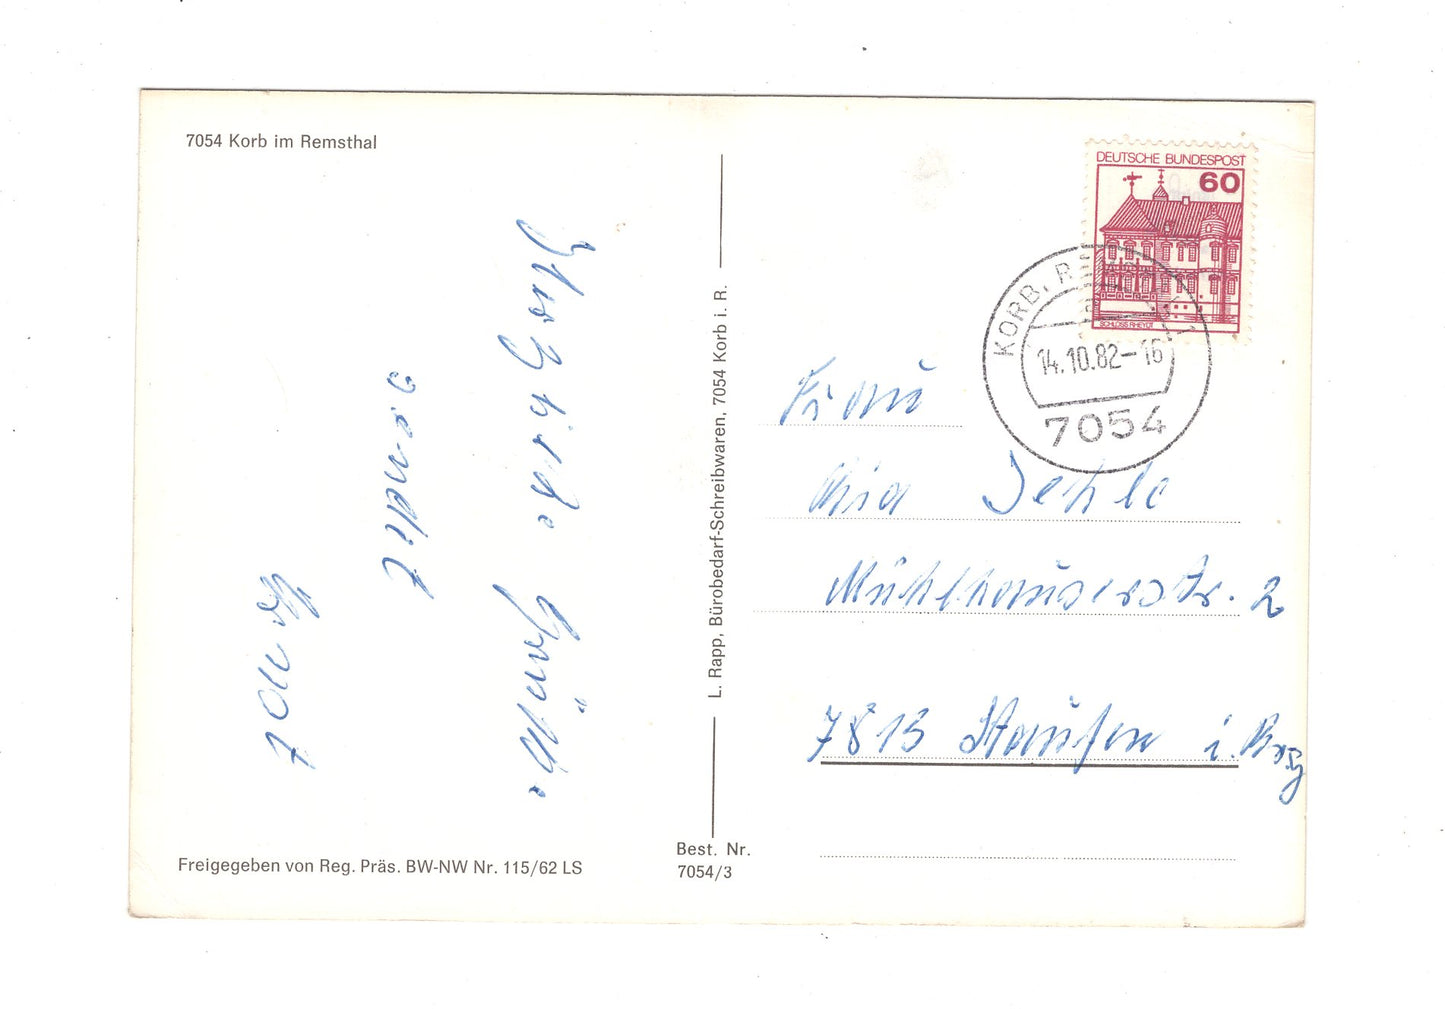 7054 Korb im Remsthal
Herzliche Grüße
sendet
Freigegeben von Reg. Präs. BW-NW Nr. 115/62 LS
L. Rapp, Bürobedarf-Schreibwaren, 7054 Korb i. R.
Best. Nr.
7054/3
DEUTSCHE BUNDESPOST
60
SCHLOSS RHEYDT
KORB,
14.10.82-16
7054
Frau
Mia Jehle
Mühlhauserstr. 2
7813 Staufen i. Brsg